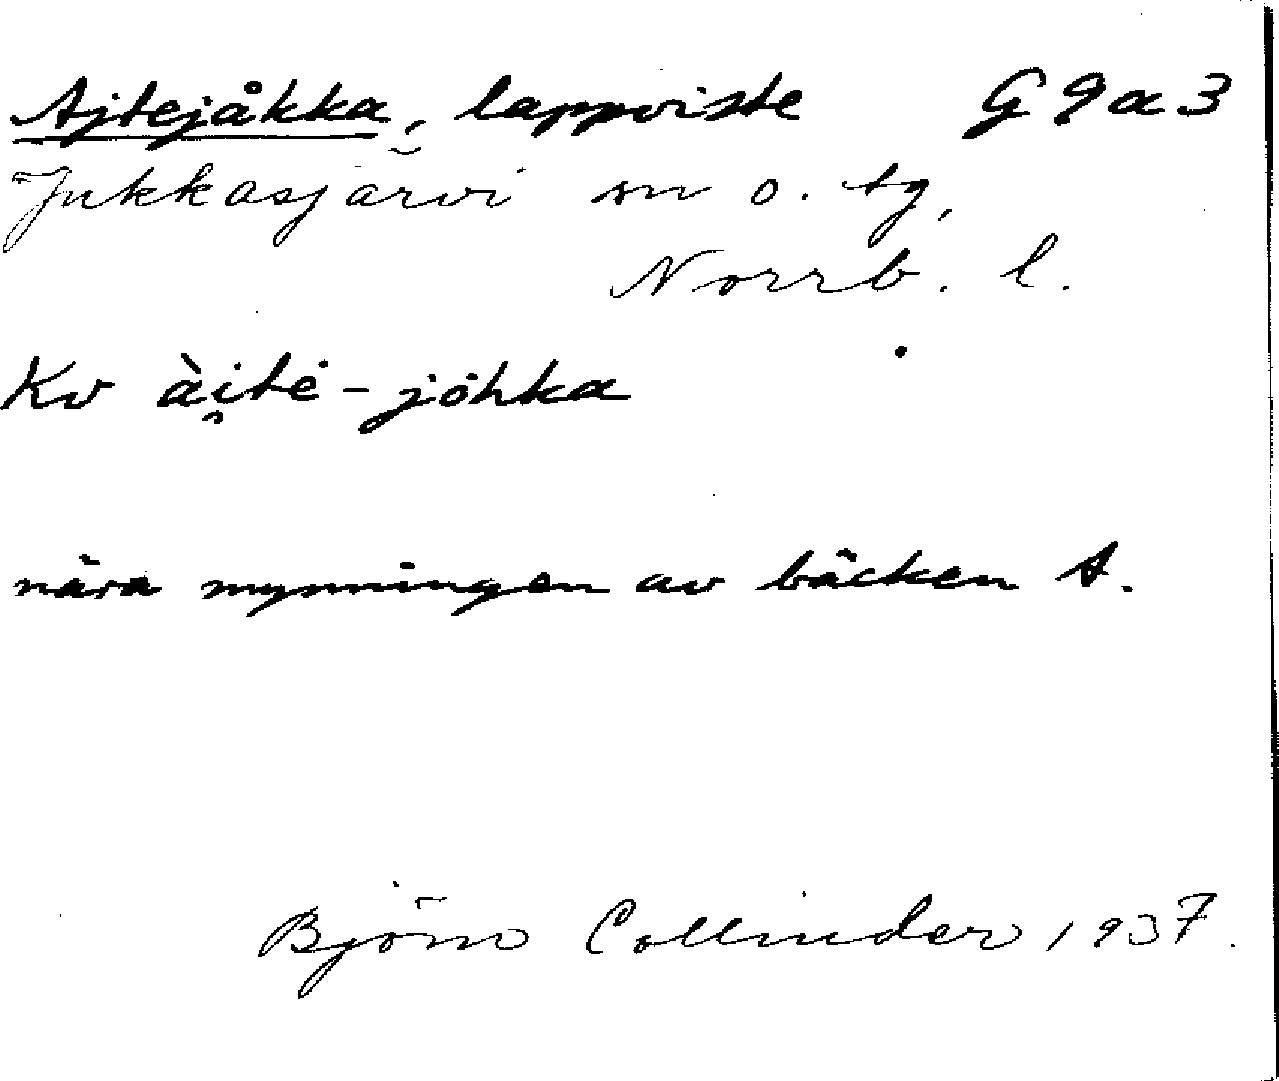 Ajtejåkka, lappviste G 9 a 3
Jukkasjärvi sn o. tg,
Norrb. l.
Kv ài̯tė-jȯhka
nära mynningen av bäcken A.
Björn Collinder 1937.